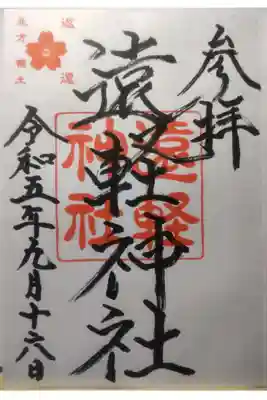 参拝
遠軽神社
遠軽
神社
返還
北方領土
令和五年九月十六日